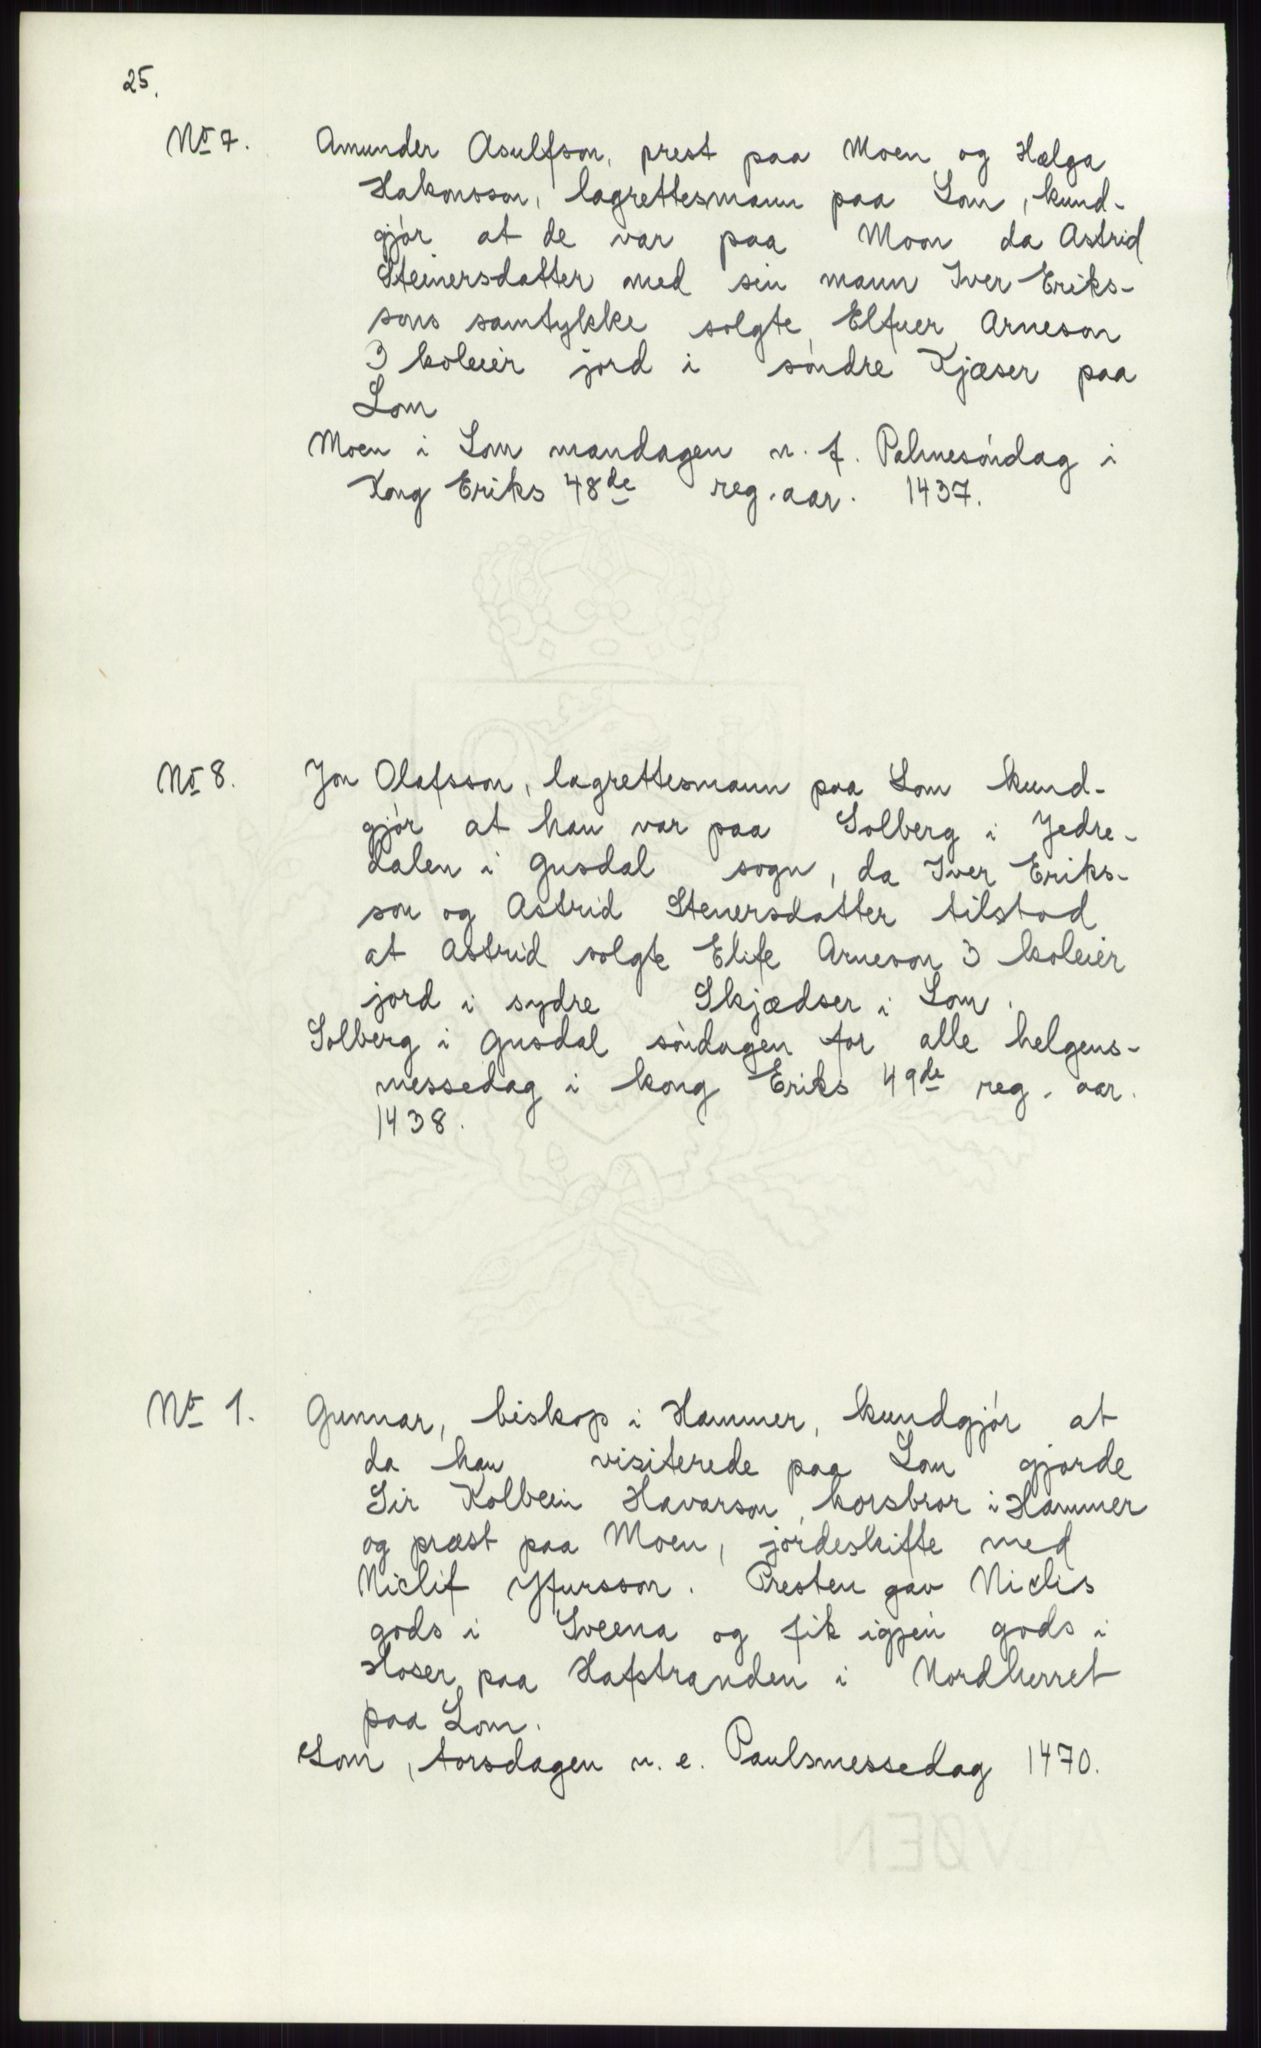 25.
No 7. Amunder Asulfson, prest paa Moen og Hælga
Hakonsson, lagrettesmann paa Lom, kund-
gjör at de var paa Moon da Astrid
Steinersdatter med sin mann Iver Eriks-
sons samtykke solgte Elfuer Arneson
3 koleier jord i söndre Kjæser paa
Lom
Moen i Lom mandagen n. f. Palmesöndag i
Kong Eriks 48de reg. aar. 1437.
No 8. Jon Olafsson, lagrettesmann paa Lom kund-
gjör at han var paa Solberg i Jedre-
dalen i Gusdal sogn, da Iver Eriks-
son og Astrid Stenersdatter tilstod
at Astrid solgte Elife Arneson 3 koleier
jord i sydre Skjædser i Lom.
Solberg i Gusdal söndagen for alle helgens-
messedag i kong Eriks 49de reg. aar.
1438.
No 1. Gunnar, biskop i Hammer, kundgjör at
da han visiterede paa Lom gjorde
Sir Kolbein Havarson, korsbror i Hammer
og præst paa Moen, jordeskifte med
Niclif Yfursson. Presten gav Niclis
gods i Sveena og fik igjen gods i
Hoser paa Hafstranden i Nordherret
paa Lom.
Lom, torsdagen n. e. Paulsmessedag 1470.
ALVØEN